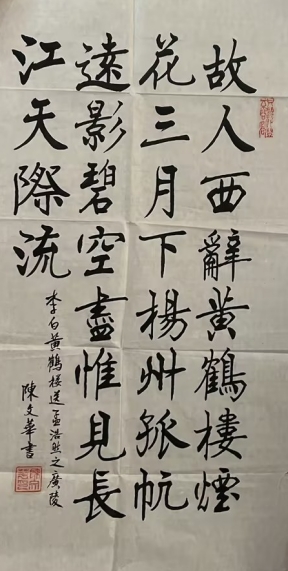 故人西辭黄鶴樓煙
花三月下楊州孤帆
遠影碧空盡惟見長
江天際流
李白黄鶴樓送孟浩然之廣陵
陳文華書